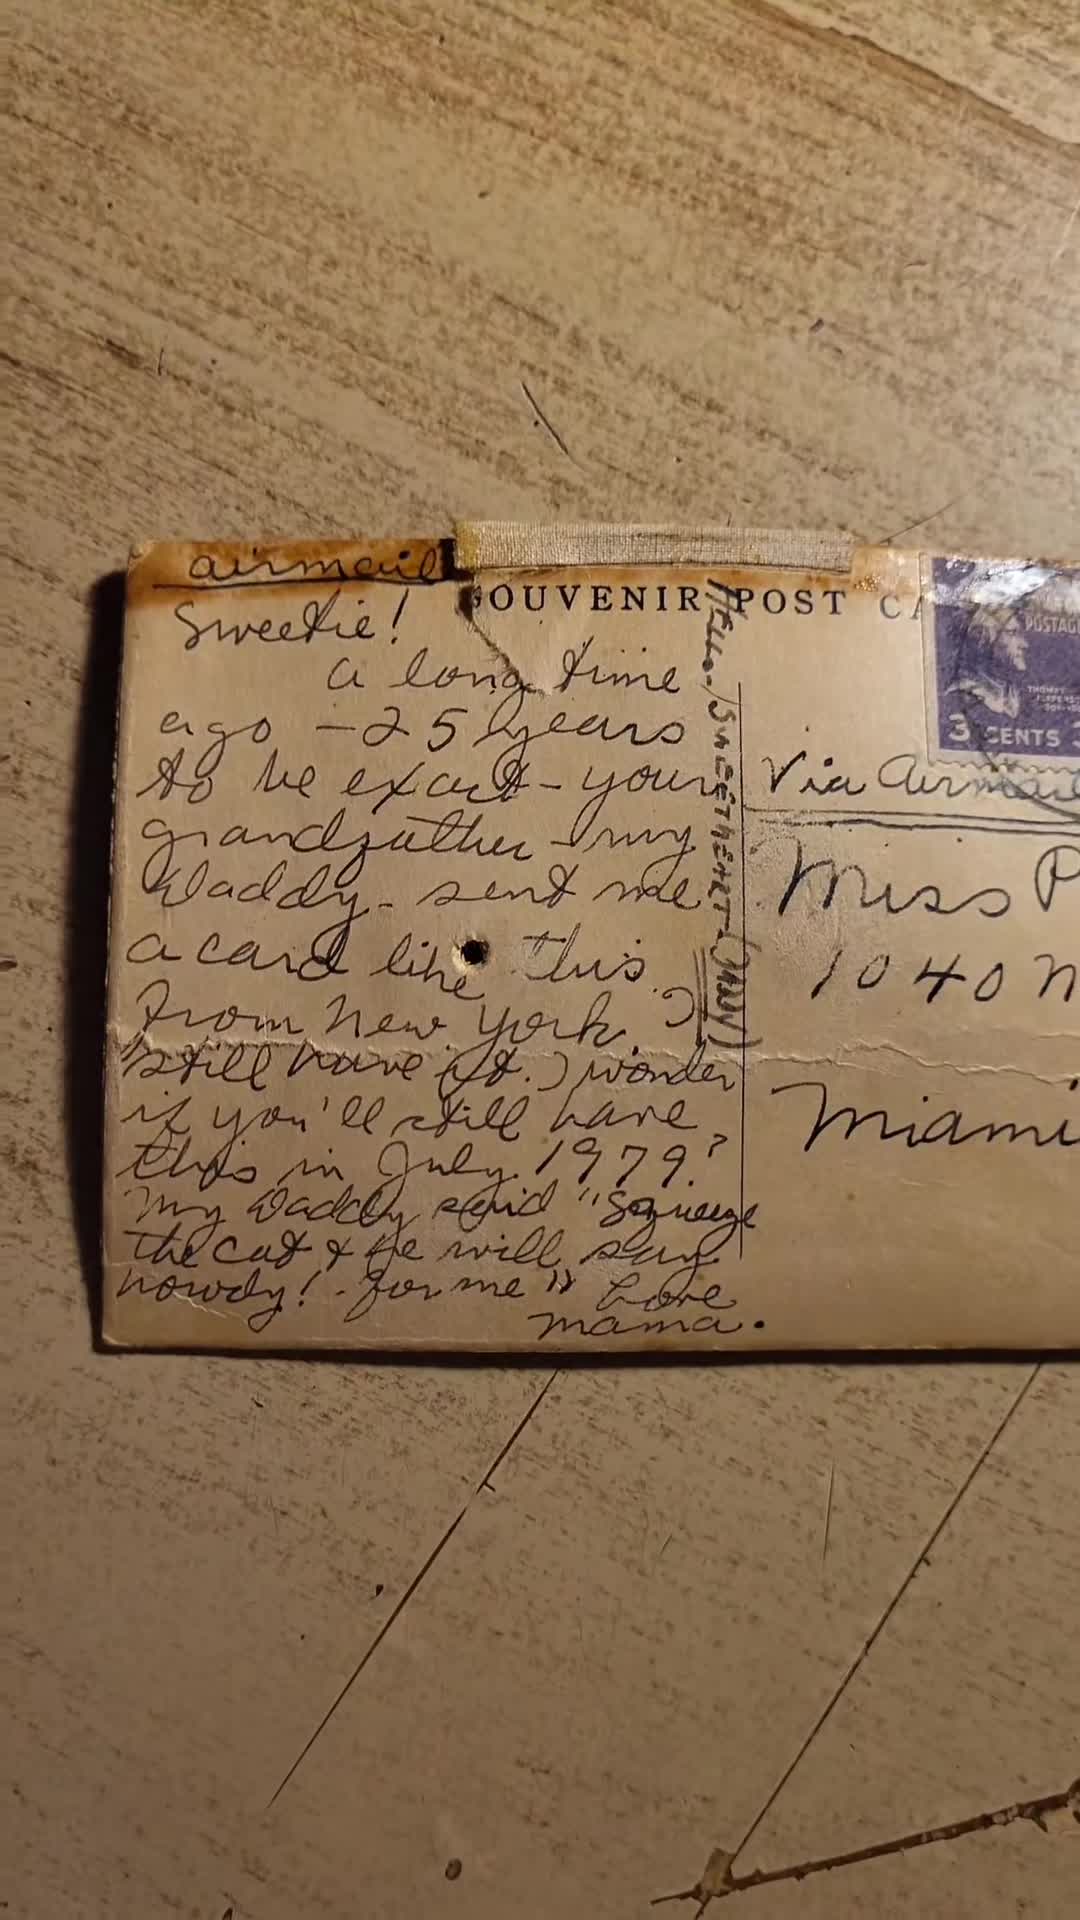 airmail
SOUVENIR POST CA
Sweetie!
a long time
ago - 25 years
to be exact - your
grandfather - my
Daddy - sent me
a card like this
from New York. I
still have it. I wonder
if you'll still have
this in July 1979?
My Daddy said "Squeeze
the cat & he will say
howdy! - for me" Love
mama.
HELLO - SWEETHEART -
POSTAGE
THOMAS
JEFFERSON
3 CENTS 3
Via Airmail
Miss P
1040 N
Miami